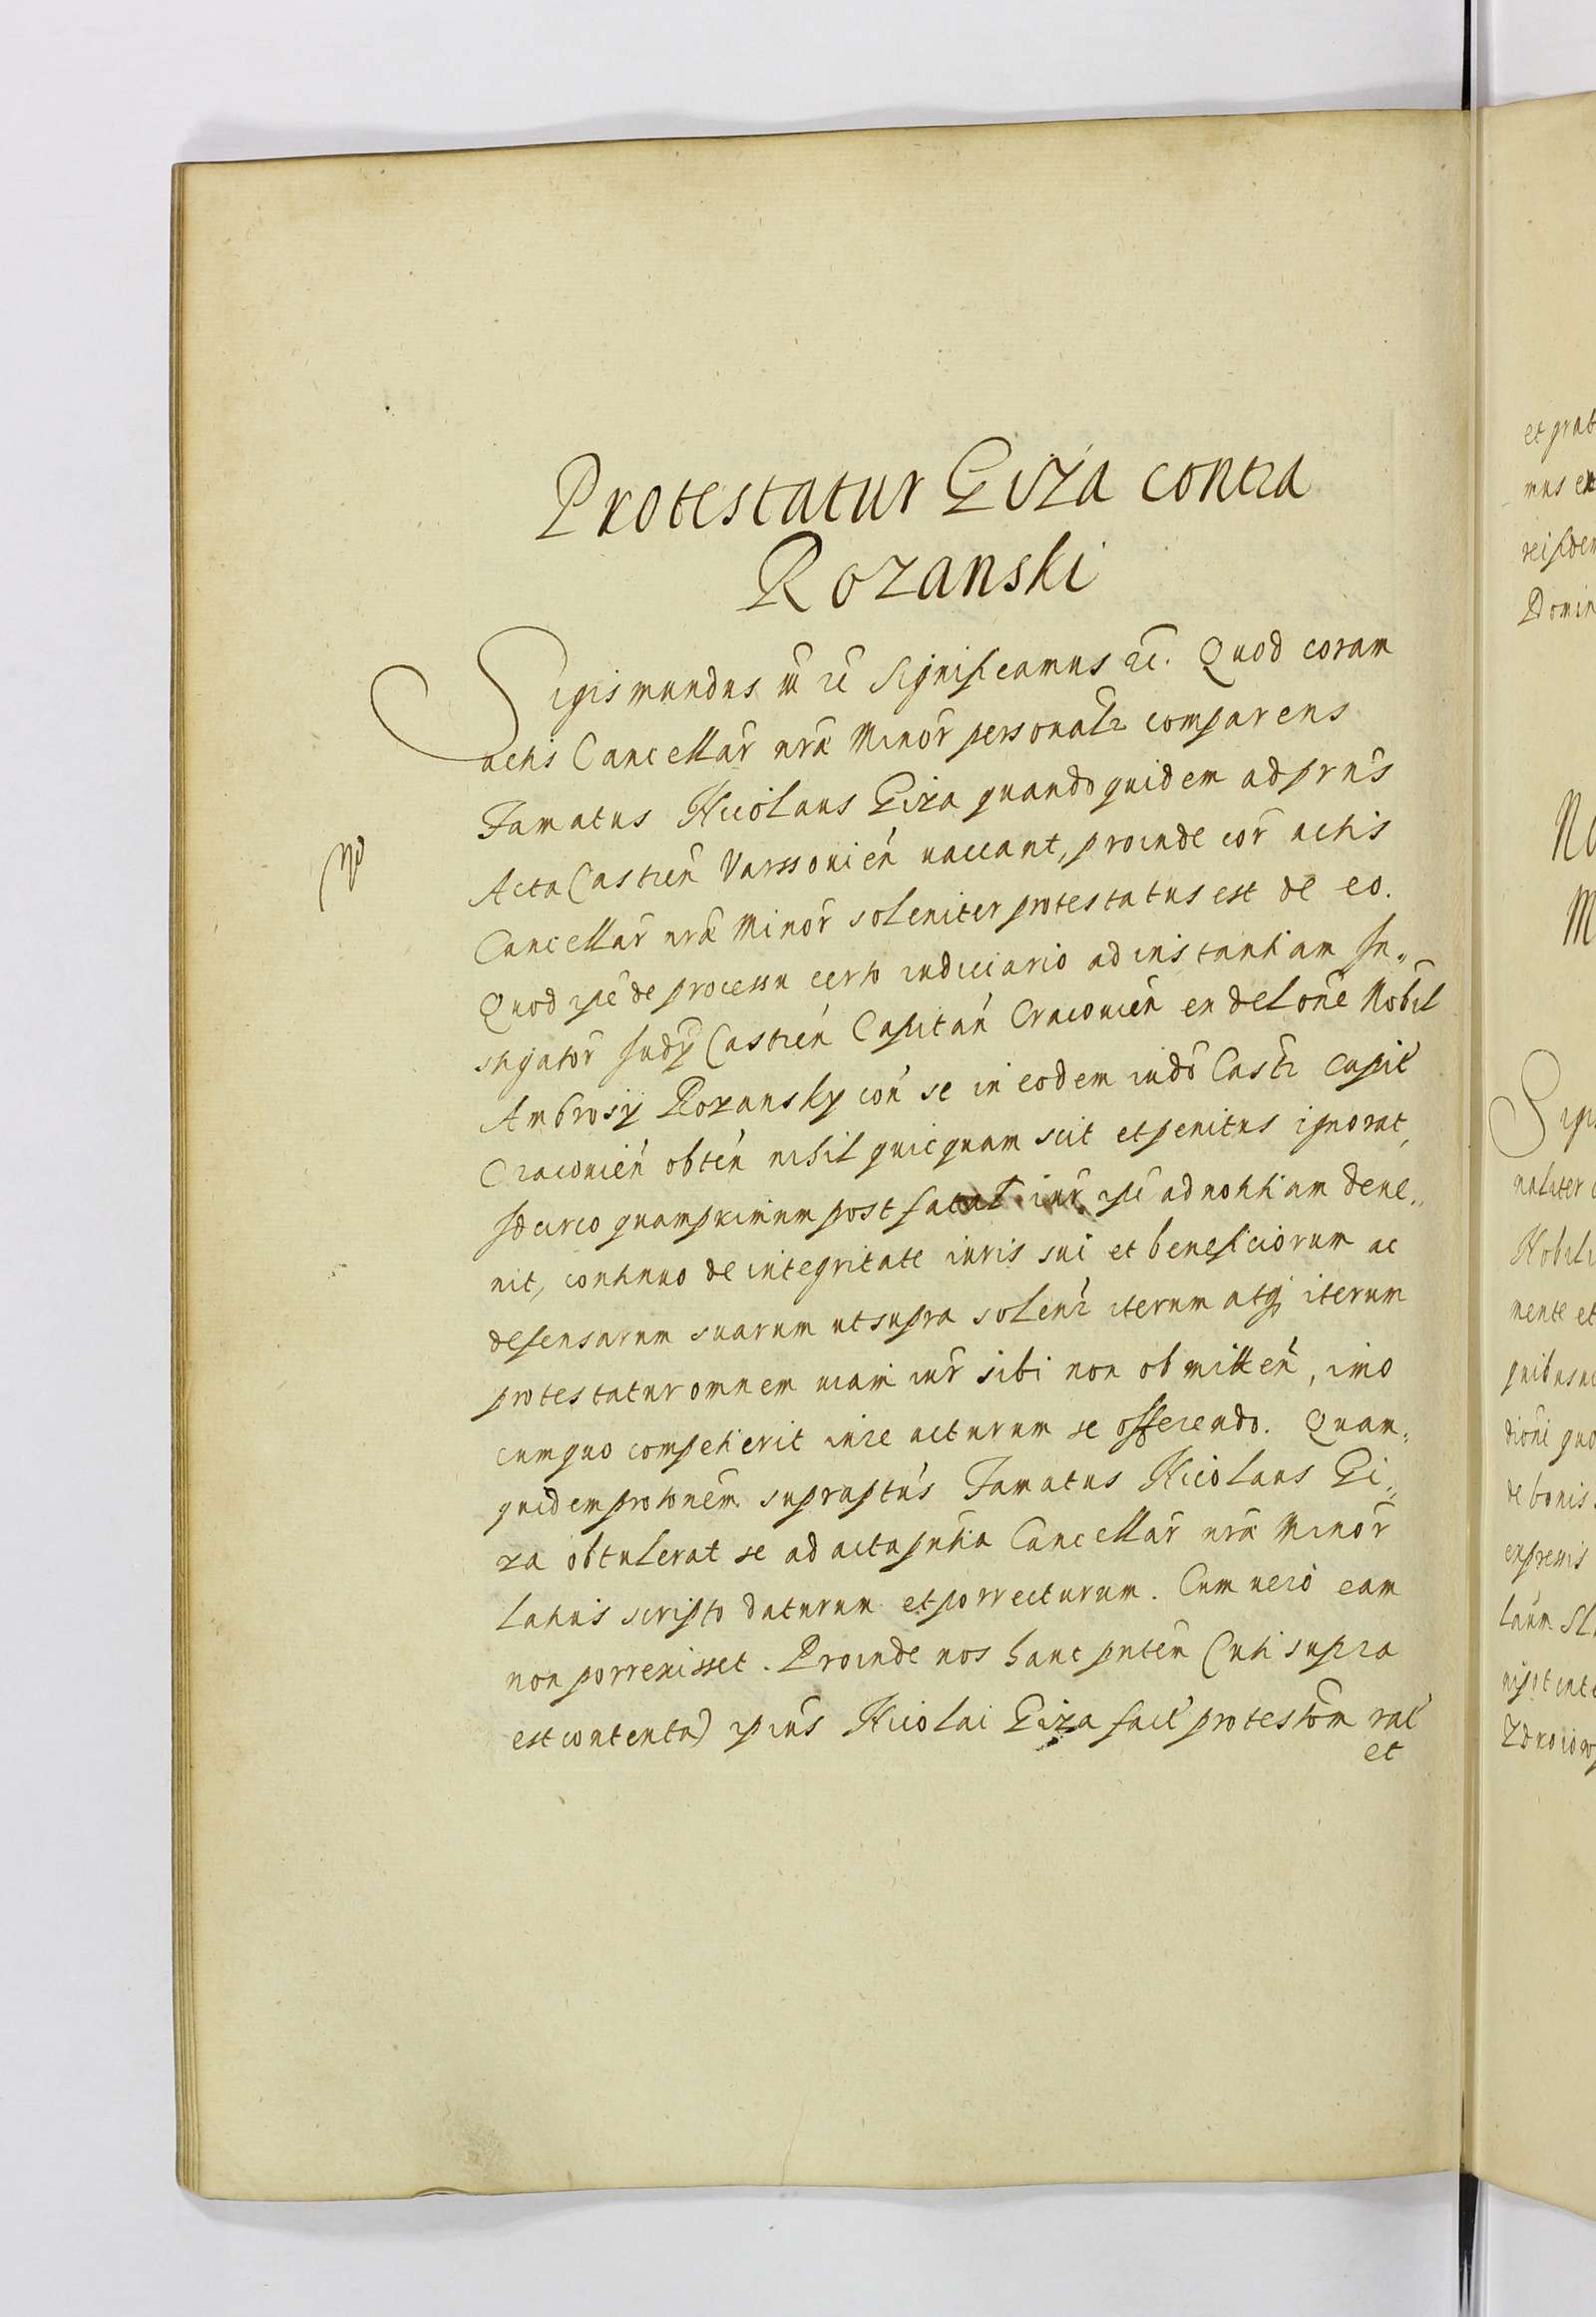 Protestatur Giza contra
Rozanski
Sigismundus III etc Significamus etc. Quod coram
actis Cancellar nrae Minor personalr comparens
Famatus Nicolaus Giza quandoquidem ad prns
Acta Castren Varssovien vaccant, proinde cor actis
Cancellar nrae Minor soleniter protestatus est de eo.
Quod ipe de processu certo iudiciario ad instantiam In„
stigator Iudy Castren Capitan Cracovien ex delone Nobil
Ambrosy Rozansky con se in eodem iudo Castr Capit
Cracovien obten nihil quicquam scit et penitus ignorat,
Idcirco quamprimum post ipe ad notitiam deve„
nit, continuo de integritate iuris sui et beneficiorum ac
defensarum suarum ut supra solenr iterum atq iterum
protestatur omnem viam iur sibi non obmitten, imo
cum quo competierit iure acturum se offerendo. Quam„
quidem protonem supraptus Famatus Nicolaus Gi„
za obtulerat se ad acta pntia Cancellar nrae Minor
latius scripto daturum et porrecturum. Cum vero eam
non porrexisset. Proinde nos hanc pntem (uti supra
est contenta) ipius Nicolai Giza fact protestom rat
et
et grat
mus ex
reisdem
Domin
No
M
Sigis
naliter c
Nobili
mente et
quibusvi
dioni quo
de bonis
expressis
Zdroiow